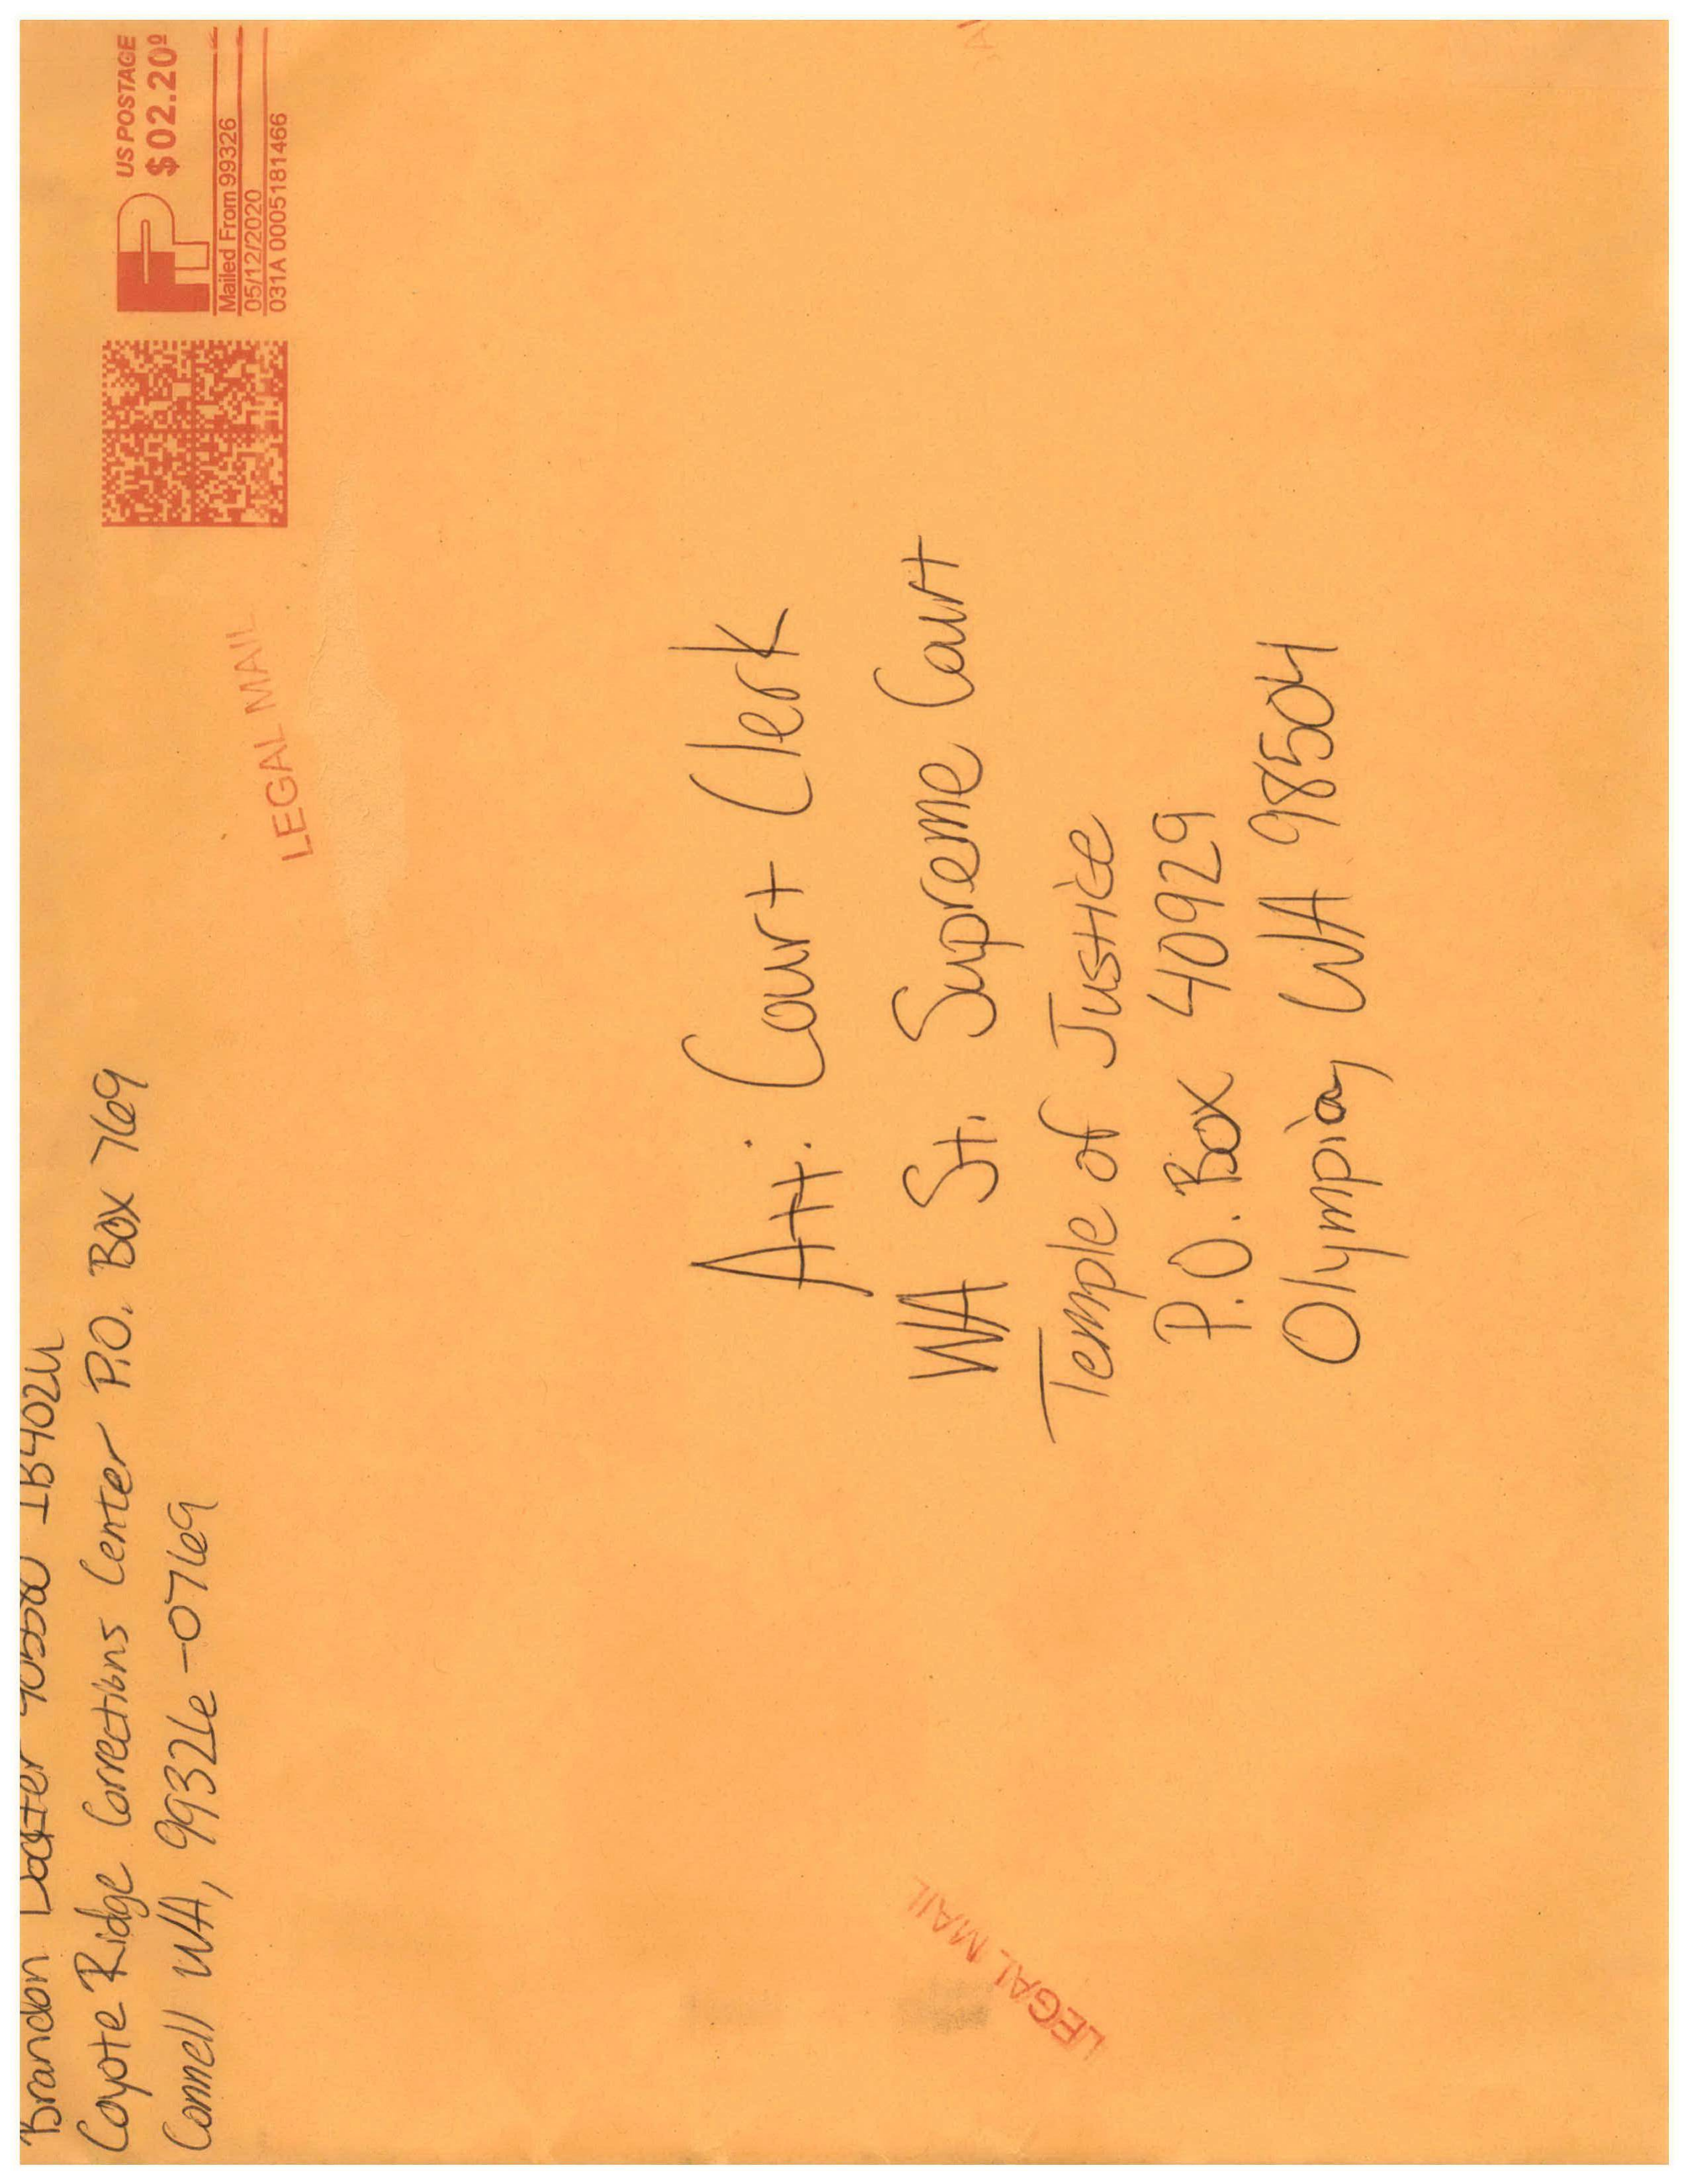 Brandon IB402U
Coyote Ridge Corrections Center P.O. Box 769
Connell WA, 99326-0769
US POSTAGE
$02.20⁰
FP
Mailed From 99326
05/12/2020
031A 0005181466
LEGAL MAIL
Att: Court Clerk
WA St. Supreme Court
Temple of Justice
P.O. Box 40929
Olympia, WA 98504
LEGAL MAIL